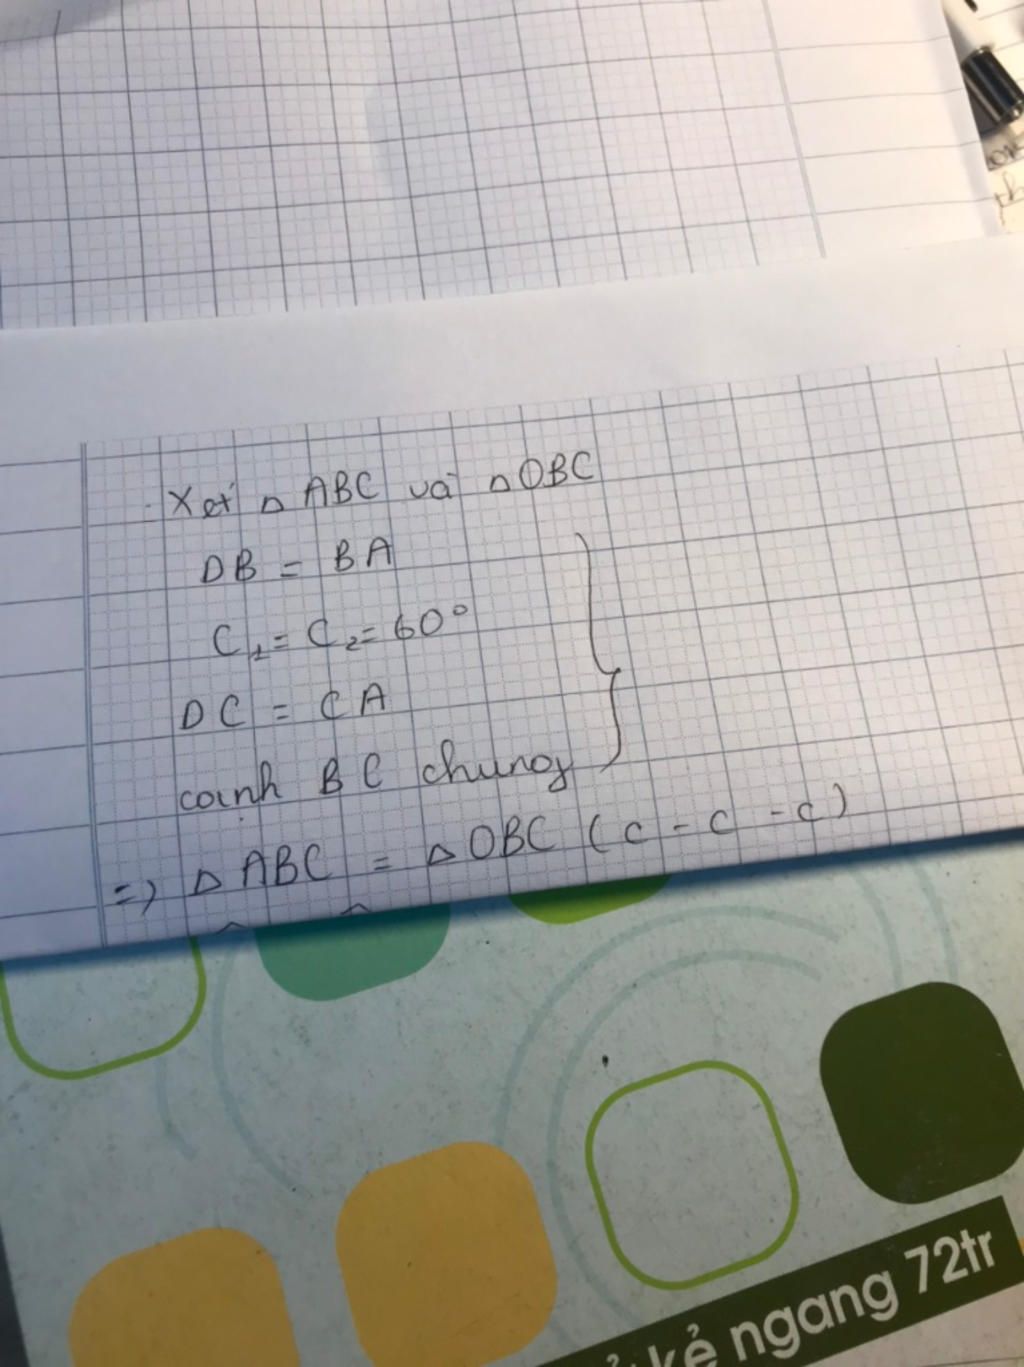 Xét △ ABC và △ DBC
DB = BA
C₁ = C₂ = 60°
DC = CA
cạnh BC chung
=> △ ABC = △ DBC (c - c - c)
kẻ ngang 72tr